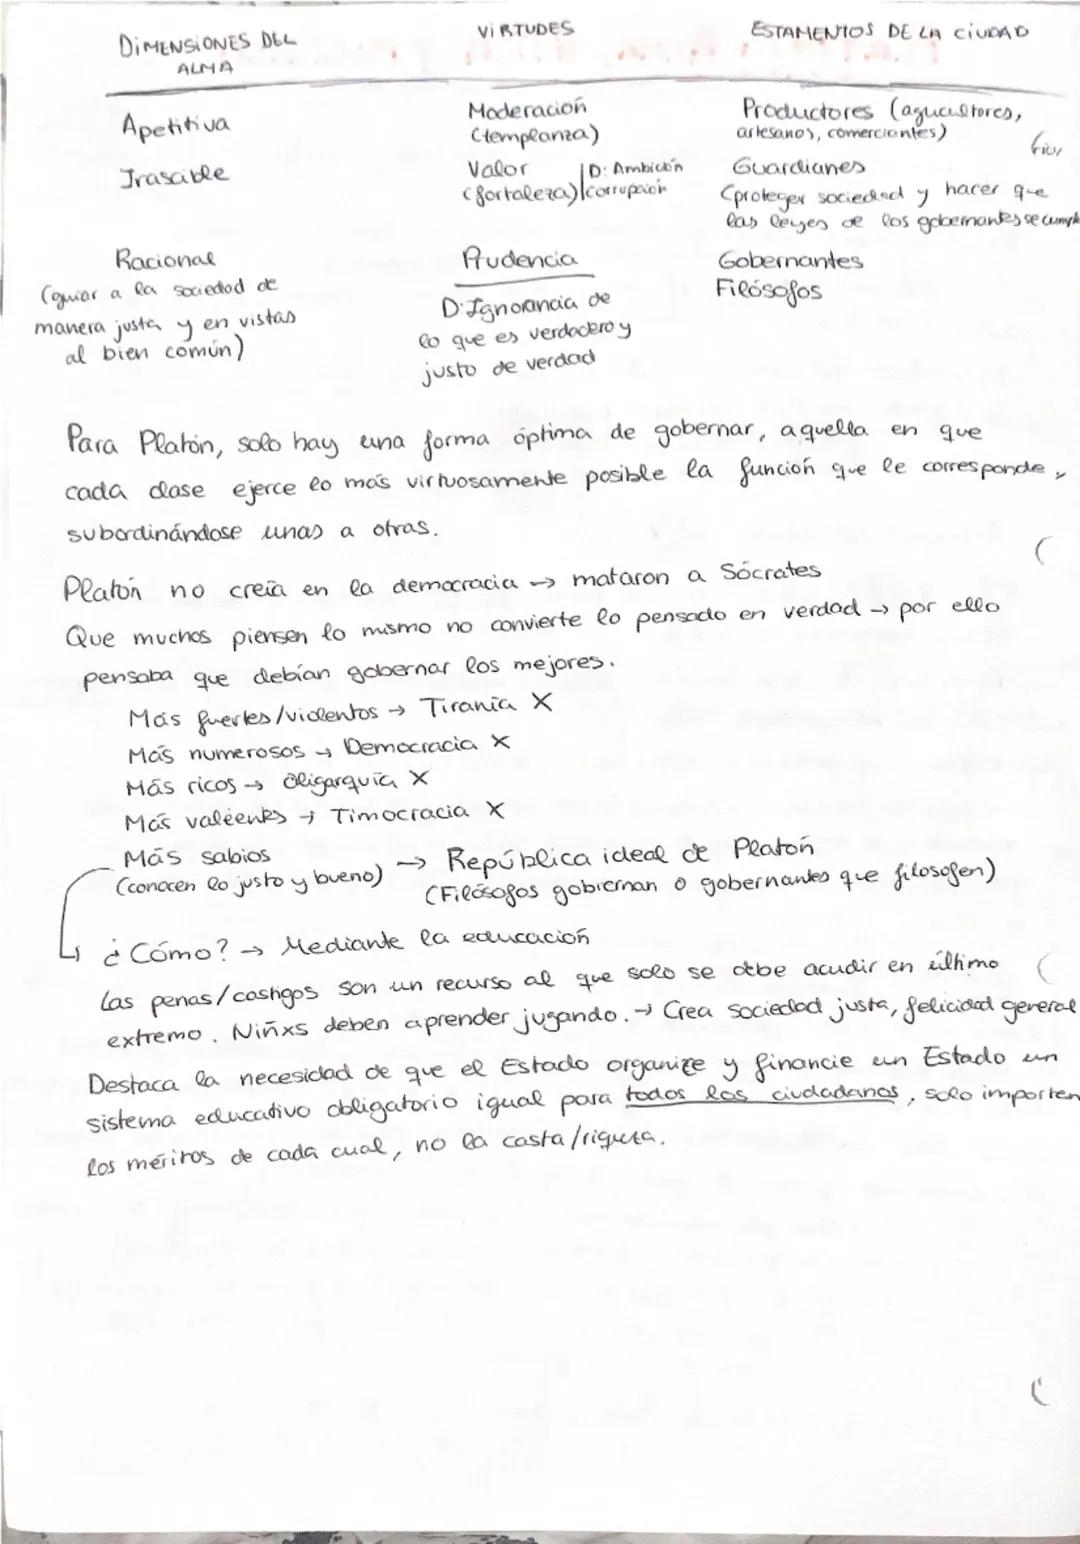 DIMENSIONES DEL ALMA
VIRTUDES
ESTAMENTOS DE LA CIUDAD
Apetitiva
Moderación
(templanza)
Productores (agricultores,
artesanos, comerciantes)
Irascible
Valor
(fortaleza)
D: Ambición
corrupción
Guardianes
(proteger sociedad y hacer que
las leyes de los gobernantes se cumpl
Racional
(guiar a la sociedad de
manera justa y en vistas
al bien común)
Prudencia
D: Ignorancia de
lo que es verdadero y
justo de verdad
Gobernantes
Filósofos
Para Platón, solo hay una forma óptima de gobernar, aquella en que
cada clase ejerce lo más virtuosamente posible la función que le corresponde,
subordinándose unas a otras.
Platón no creía en la democracia → mataron a Sócrates
Que muchos piensen lo mismo no convierte lo pensado en verdad → por ello
pensaba que debían gobernar los mejores.
Más fuertes/violentos → Tiranía X
Más numerosos → Democracia X
Más ricos → Oligarquía X
Más valientes → Timocracia X
Más sabios
(conocen lo justo y bueno) → República ideal de Platón
(Filósofos gobiernan o gobernantes que filosofen)
¿Cómo? → Mediante la educación
Las penas/castigos son un recurso al que solo se debe acudir en último
extremo. Niñxs deben aprender jugando. → Crea sociedad justa, felicidad general
Destaca la necesidad de que el Estado organize y financie un Estado un
sistema educativo obligatorio igual para todos los ciudadanos, solo importen
los méritos de cada cual, no la casta/riqueza.